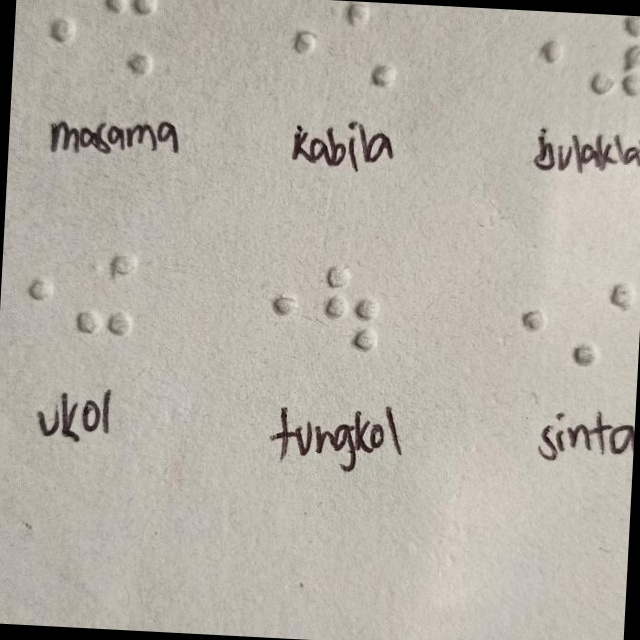 masama kabila bulakla
ukol tungkol sinta